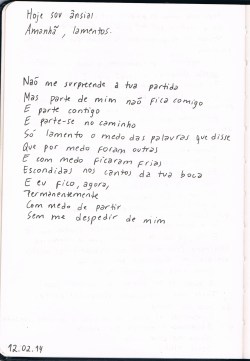 Hoje sou ânsia!
Amanhã, lamentos.
Não me surpreende a tua partida
Mas parte de mim não fica comigo
E parte contigo
E parte-se no caminho
Só lamento o medo das palavras que disse
Que por medo foram outras
E com medo ficaram frias
Escondidas nos cantos da tua boca
E eu fico, agora,
Permanentemente
Com medo de partir
Sem me despedir de mim
12.02.14